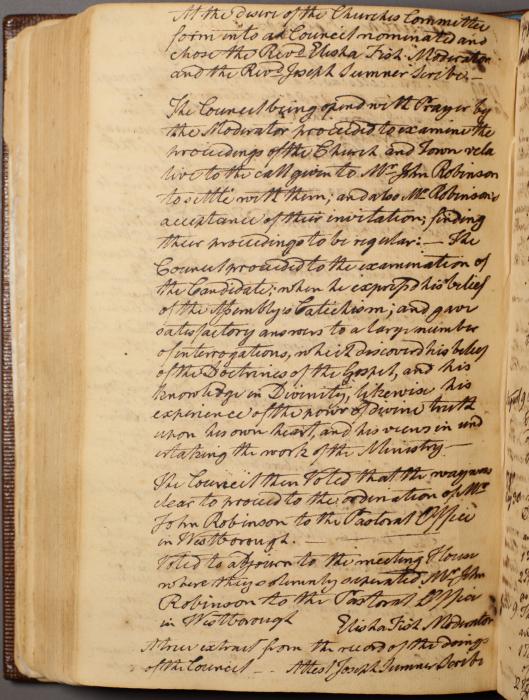 At the desire of the Churches Committee
form into a Council nominated and
chose the Revd. Elisha Fish Moderator
and the Revd. Joseph Sumner Scribe. —
The Council being opend with Prayer by
the Moderator proceeded to examine the
proceedings of the Church and Town rela
tive to the call given to Mr John Robinson
to settle with them; and also Mr Robinson's
acceptance of their invitation; finding
their proceedings to be regular: — The
Council proceeded to the examination of
the Candidate; when he express'd his belief
of the Assembly's Catechism; and gave
satisfactory answers to a large number
of interogations, which discoverd his belief
of the Doctrines of the Gospel, and his
knowledge in Divinity, likewise his
experience of the power of divine truth
upon his own heart, and his views in und
ertaking the work of the Ministry —
The Council then Voted that the way was
clear to proceed to the ordination of Mr
John Robinson to the Pastoral Office
in Westborough. —
Voted to adjourn to the meeting House
where they solemnly seperated Mr John
Robinson to the Pastoral Office
in Westborough Elisha Fish Moderator
A true extract from the record of the doings
of the Council — Attest Joseph Sumner Scribe